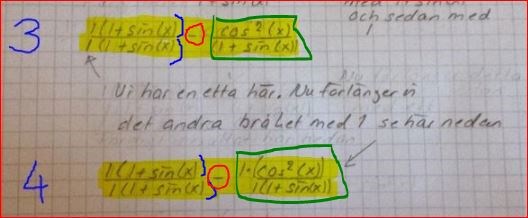 och sedan med
1
3 1(1+sin(x)) / 1(1+sin(x)) - cos²(x) / (1+sin(x))
Vi har en etta här. Nu förlänger vi
det andra bråket med 1 se här nedan
4 1(1+sin(x)) / 1(1+sin(x)) - 1·(cos²(x)) / 1(1+sin(x))